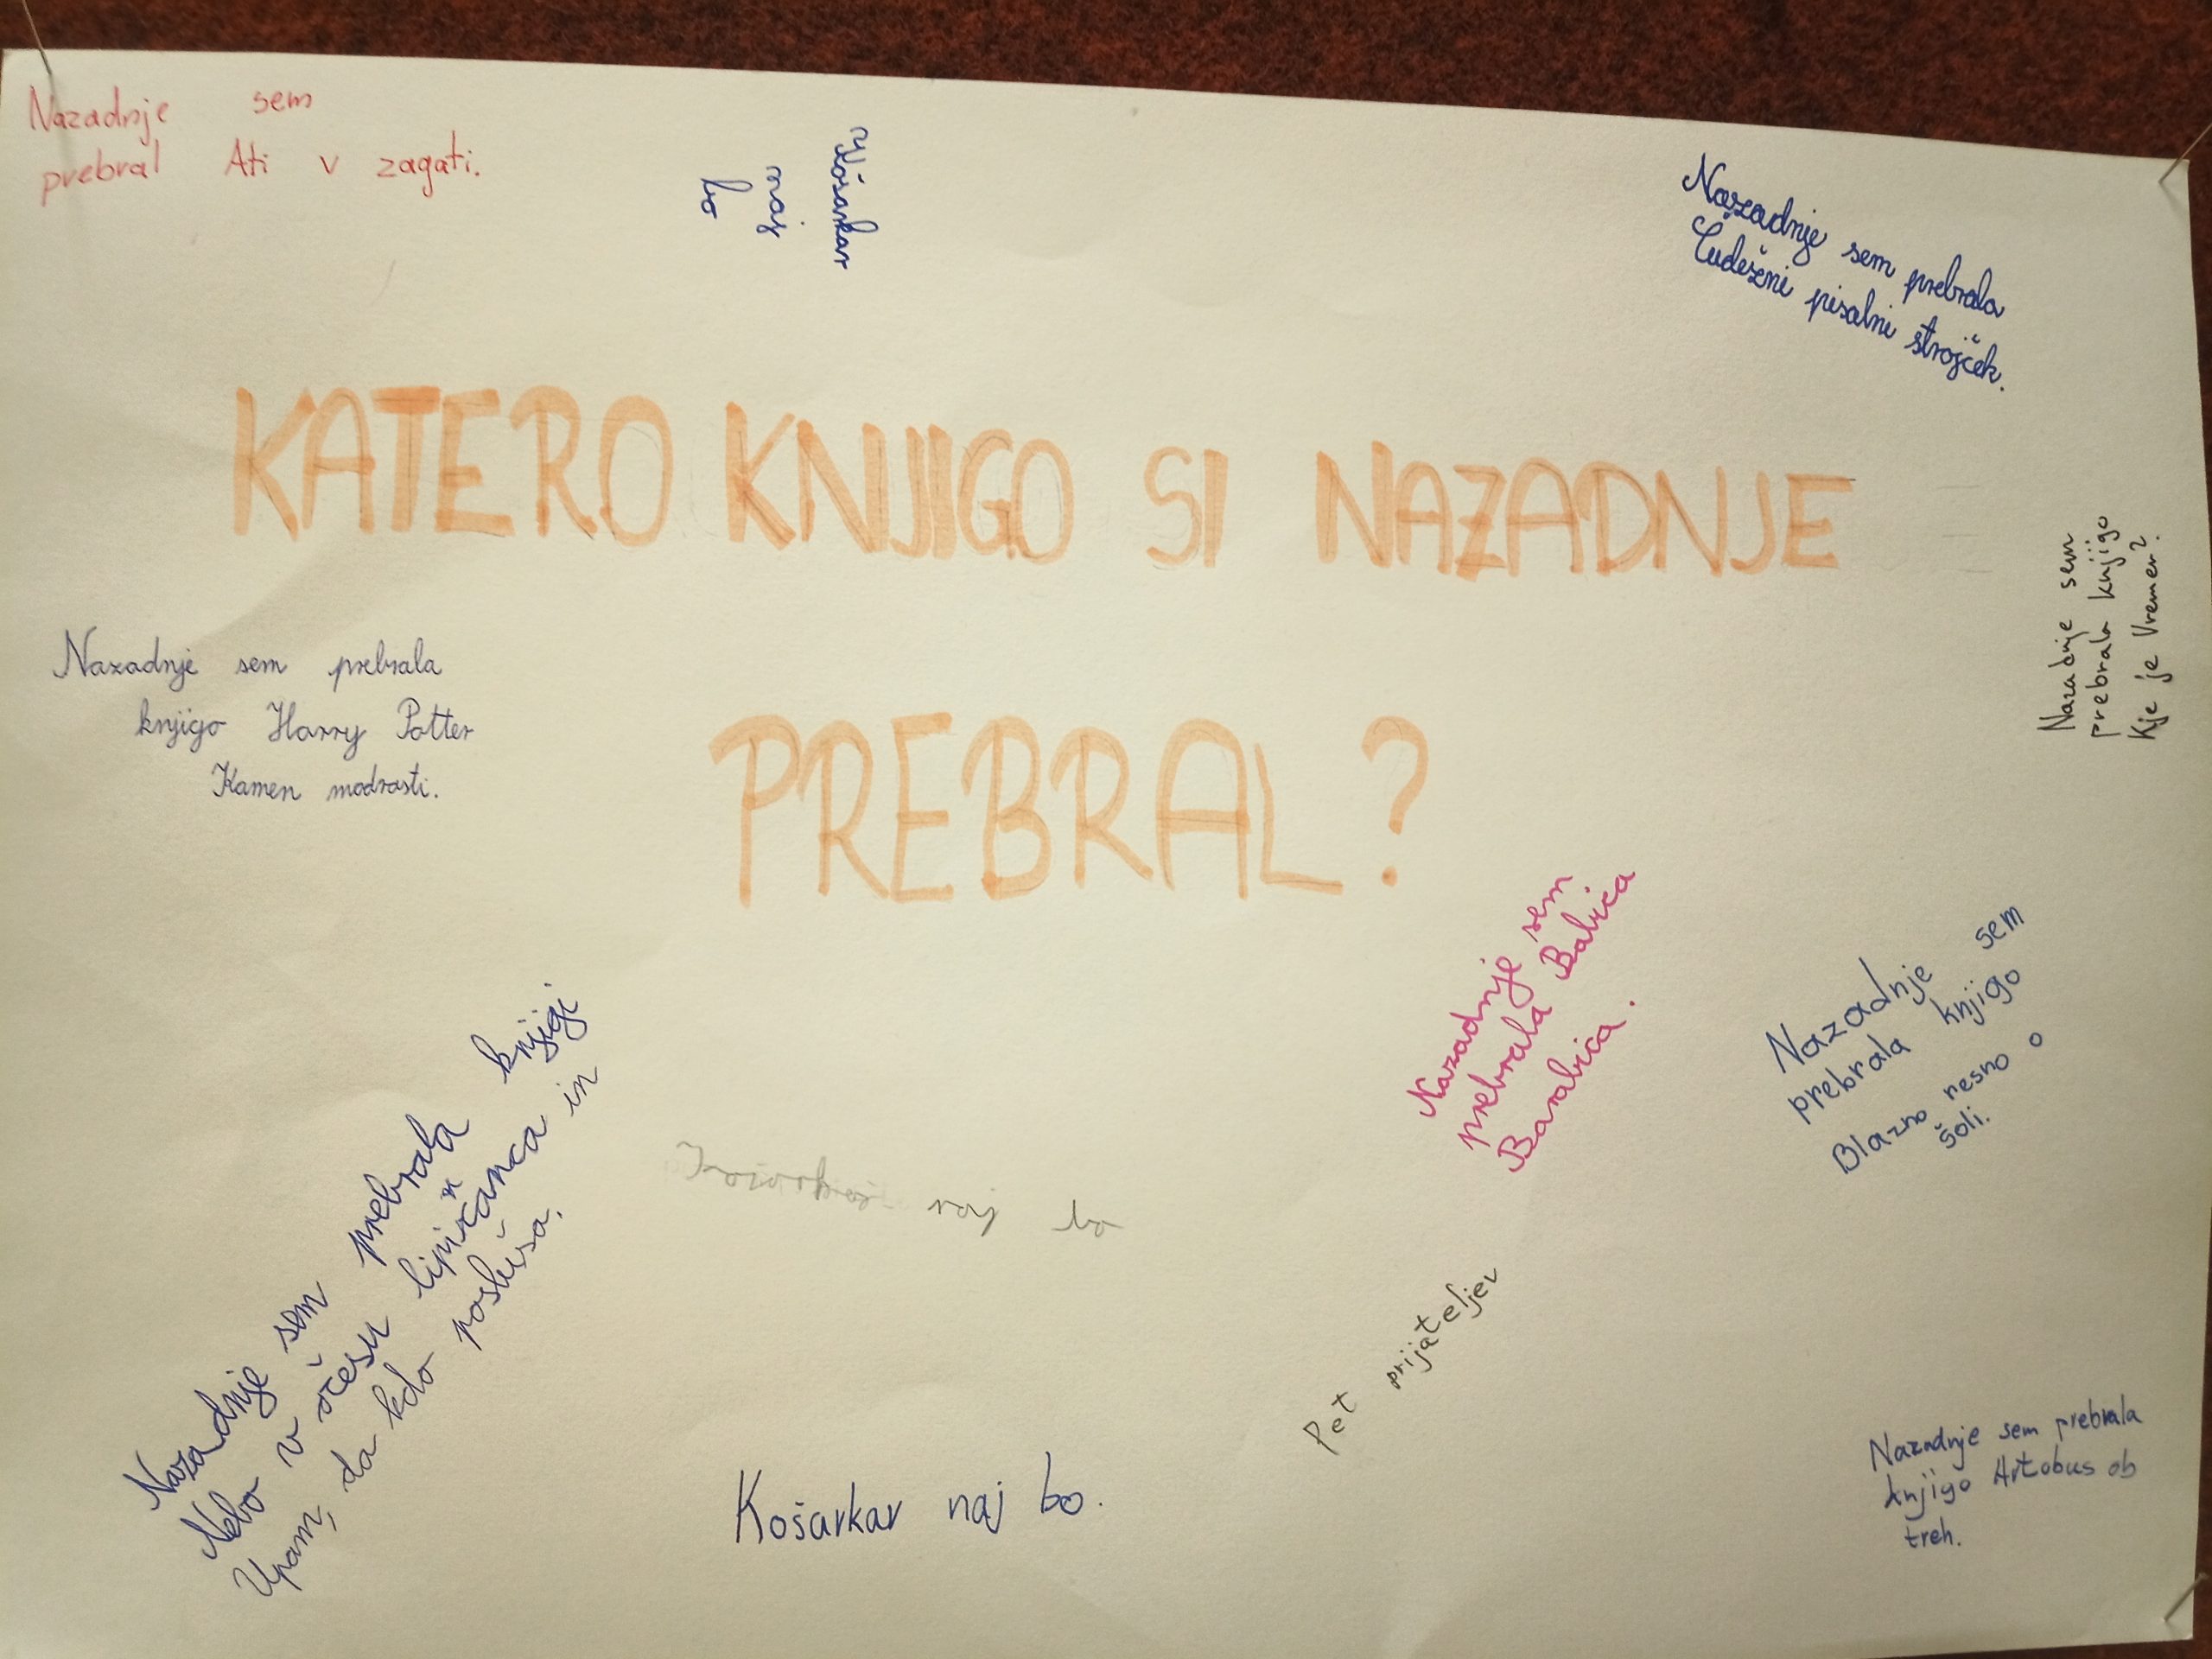 Nazadnje sem
prebral Ati v zagati.
Košarkar
naj
bo
Nazadnje sem prebrala
Čudežni pisalni strojček.
KATERO KNJIGO SI NAZADNJE
PREBRAL?
Nazadnje sem
prebrala knjigo
Kje je Vremer?.
Nazadnje sem prebrala
knjigo Harry Potter
Kamen modrosti.
Nazadnje sem
prebrala Babica
Barabica.
Nazadnje sem
prebrala knjigo
Blazno resno o
šoli.
Nazadnje sem prebrala knjigi
Nebo v očesu lipicanca in
Upam, da kdo posluša.
naj bo
Pet prijateljev
Košarkar naj bo.
Nazadnje sem prebrala
knjigo Artobus ob
treh.